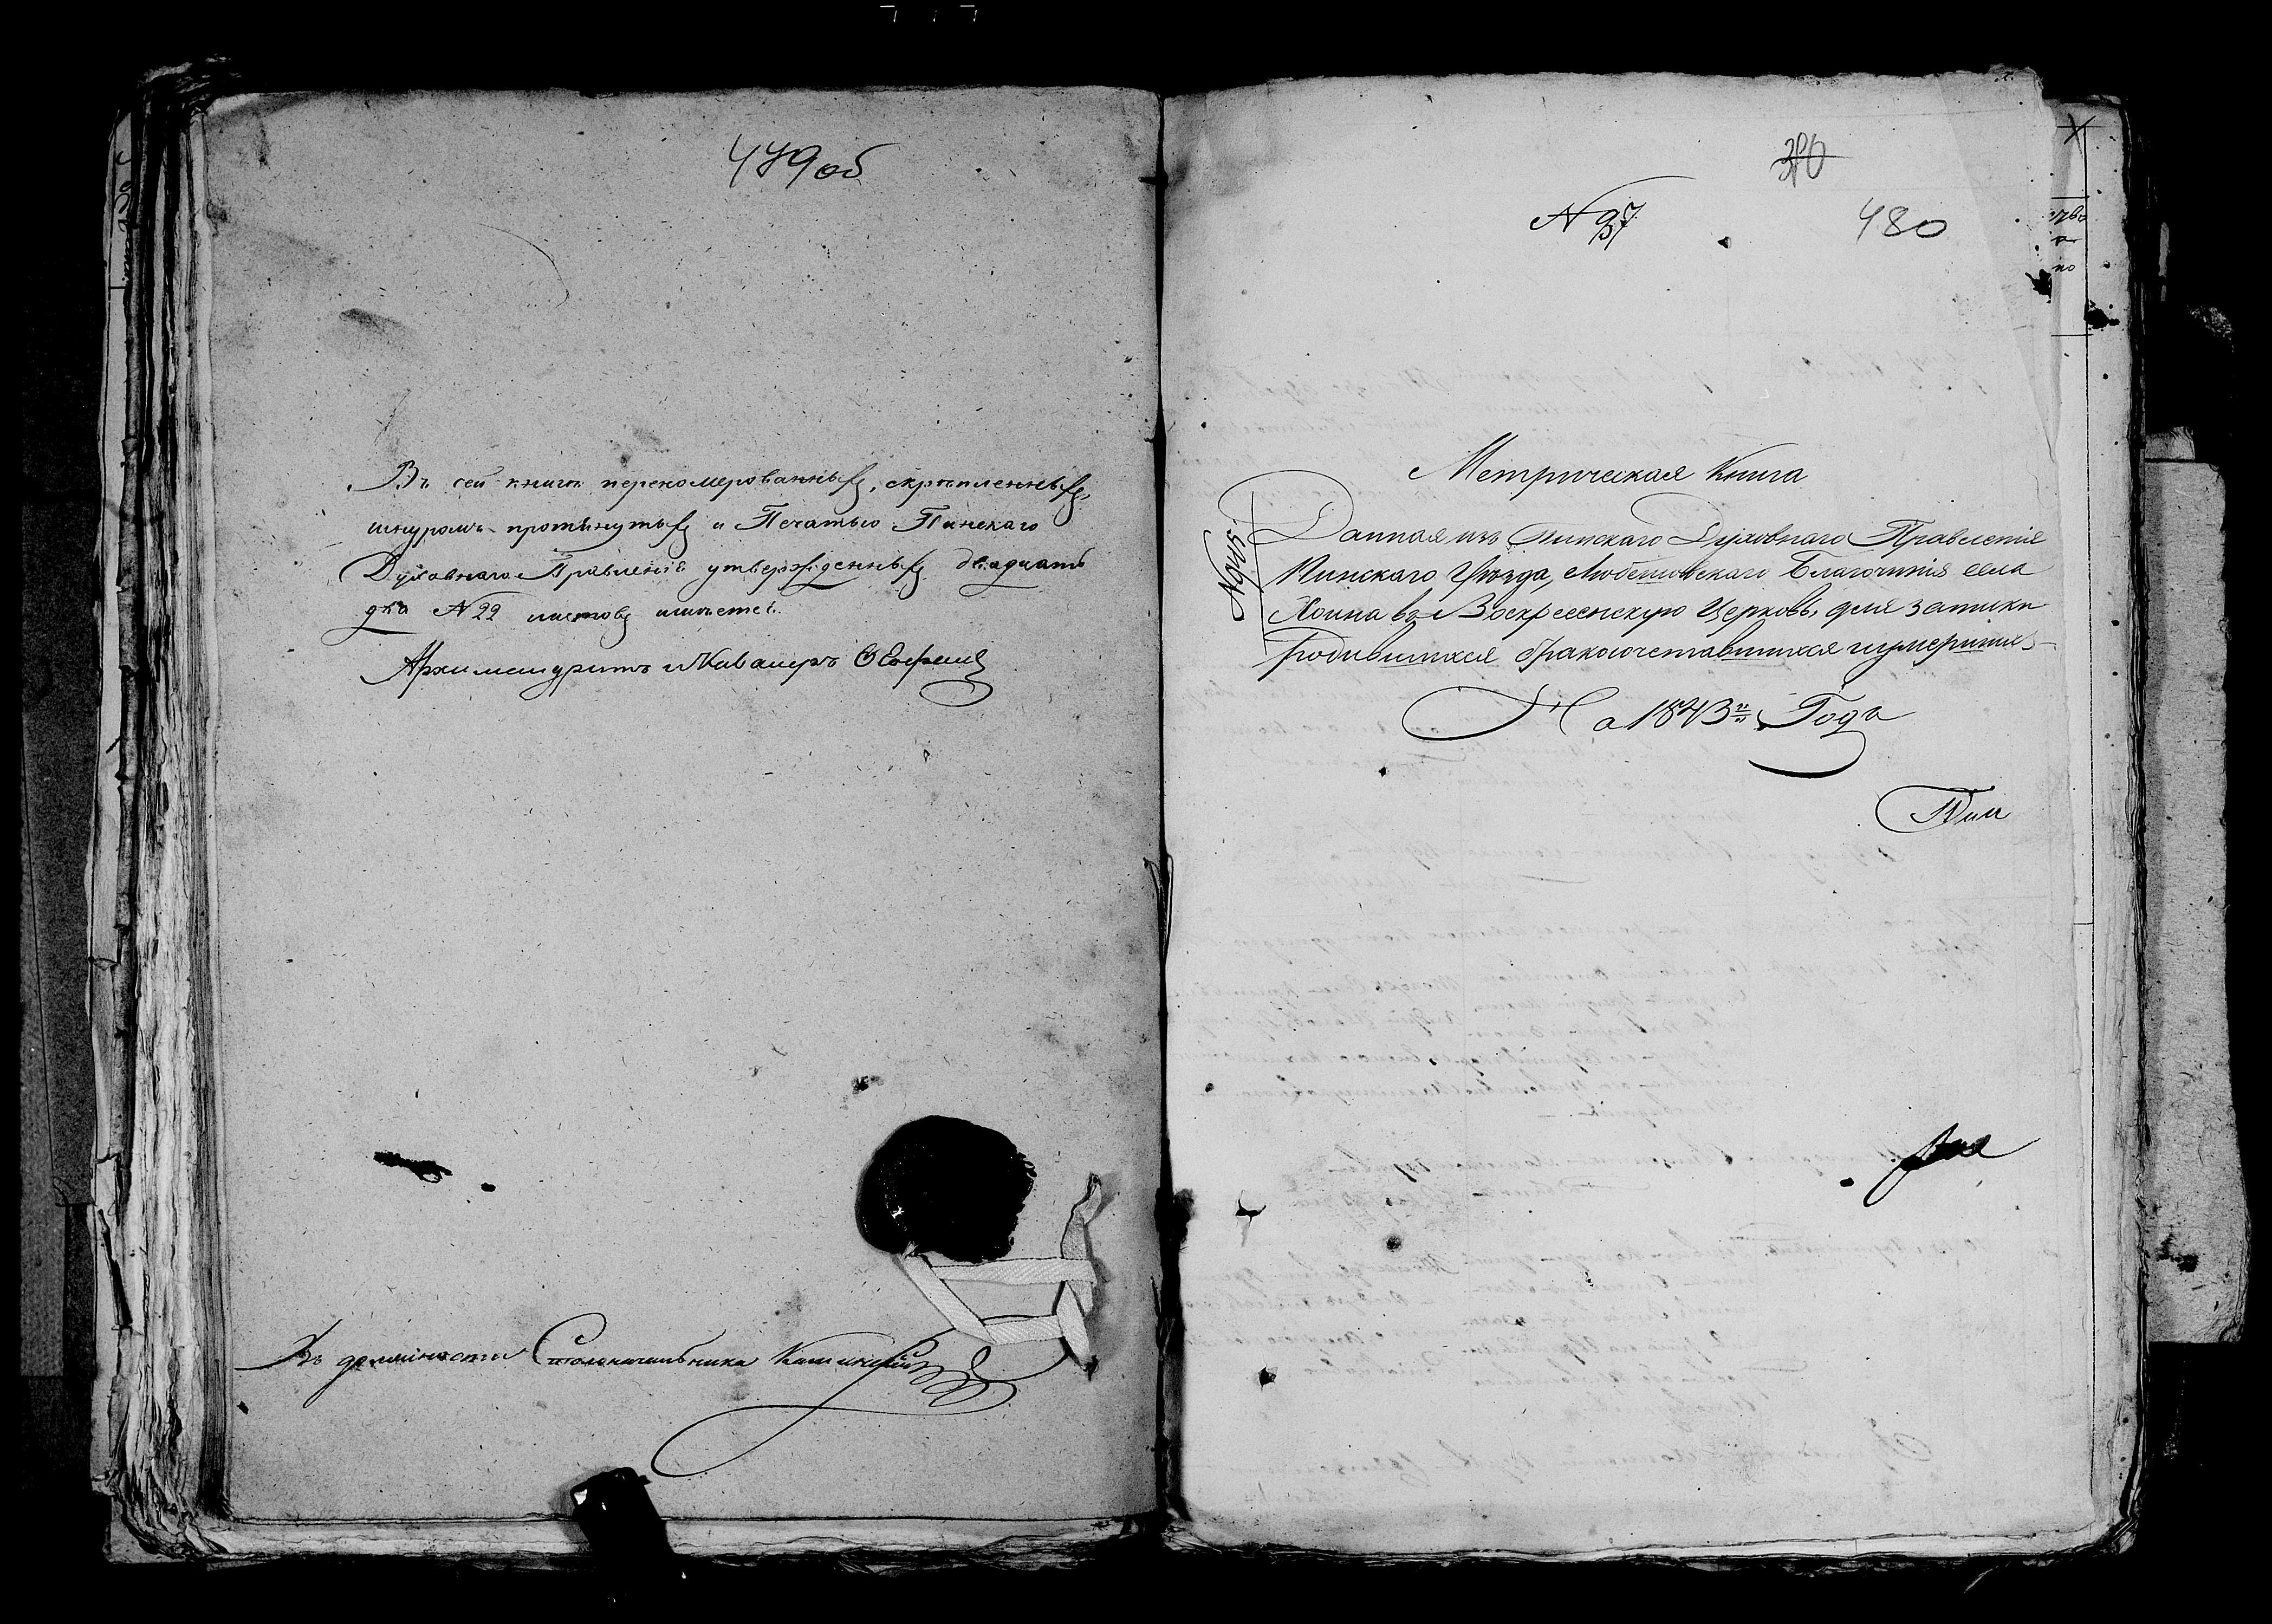 479 об
Въ сей книге перономерованныхъ, скрепленныхъ,
шнуромъ протянутыхъ и Печатью Пинскаго
Духовнаго Правленія утвержденныхъ двадцать
два N 22 листовъ имеется.
Архимандритъ и Кавалеръ
Въ должности Столоначальника
480
Метрическая Книга
Данная изъ Пинскаго Духовнаго Правленія
Пинскаго Уѣзда, Любешовскаго Благочинія села
Хоина въ Воскресенскую Церковь, для записки
родившихся бракосочетавшихся и умершихъ
На 1843й Годъ
Пин